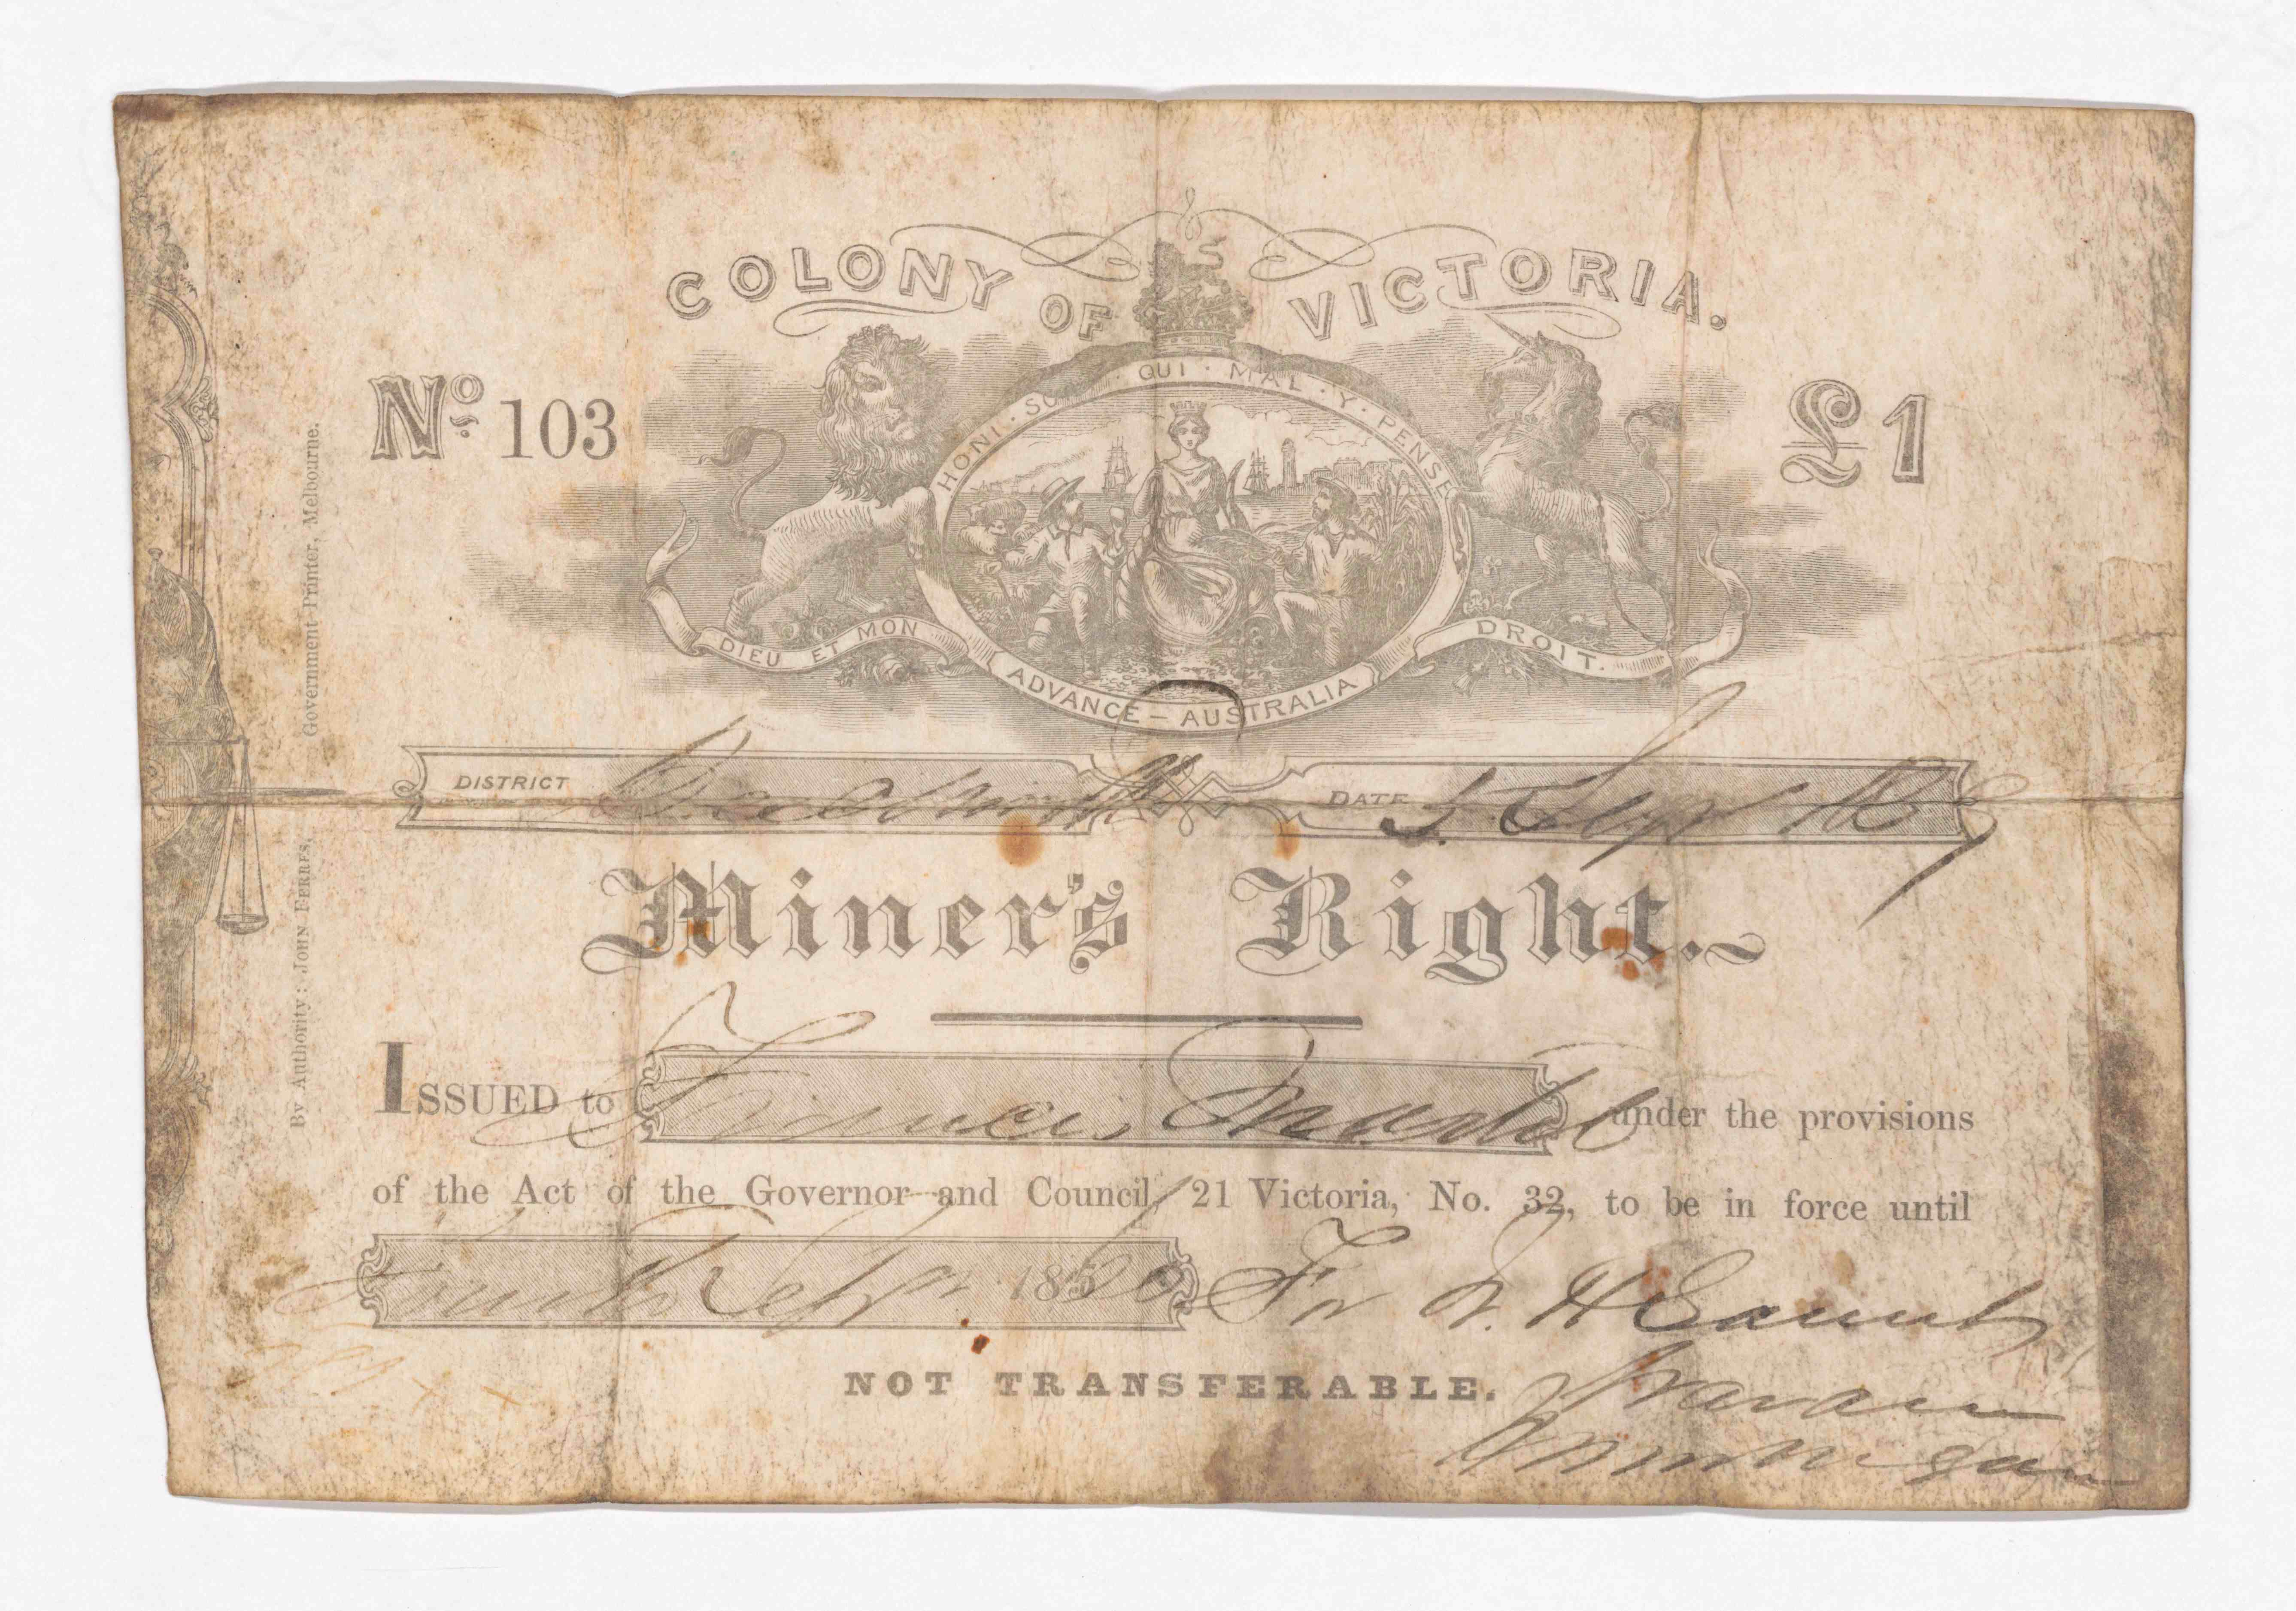 COLONY OF VICTORIA.
No. 103
£1
HONI · SOIT · QUI · MAL · Y · PENSE
DIEU ET MON DROIT.
ADVANCE — AUSTRALIA
DISTRICT Beechworth DATE 5. Sept 1859
Miner's Right.
ISSUED to Francis Martel under the provisions
of the Act of the Governor and Council, 21 Victoria, No. 32, to be in force until
Fourth Sept 1860 For
NOT TRANSFERABLE.
By Authority: JOHN FERRES, Government Printer, Melbourne.